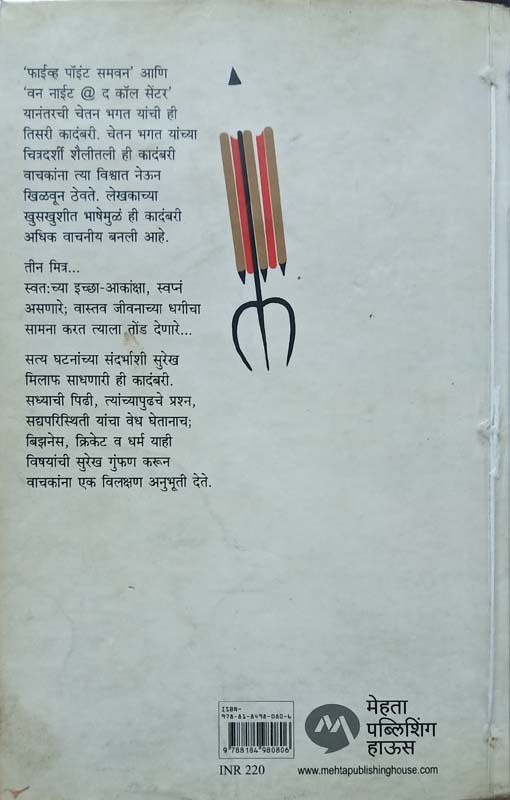 ‘फाईव्ह पॉइंट समवन’ आणि
‘वन नाईट @ द कॉल सेंटर’
यानंतरची चेतन भगत यांची ही
तिसरी कादंबरी. चेतन भगत यांच्या
चित्रदर्शी शैलीतली ही कादंबरी
वाचकांना त्या विश्वात नेऊन
खिळवून ठेवते. लेखकाच्या
खुसखुशीत भाषेमुळं ही कादंबरी
अधिक वाचनीय बनली आहे.
तीन मित्र...
स्वत:च्या इच्छा-आकांक्षा, स्वप्नं
असणारे; वास्तव जीवनाच्या धगीचा
सामना करत त्याला तोंड देणारे...
सत्य घटनांच्या संदर्भाशी सुरेख
मिलाफ साधणारी ही कादंबरी.
सध्याची पिढी, त्यांच्यापुढचे प्रश्न,
सद्यपरिस्थिती यांचा वेध घेतानाच;
बिझनेस, क्रिकेट व धर्म याही
विषयांची सुरेख गुंफण करून
वाचकांना एक विलक्षण अनुभूती देते.
ISBN-
978-81-8498-080-6
9 788184 980806
INR 220
मेहता
पब्लिशिंग
हाऊस
www.mehtapublishinghouse.com